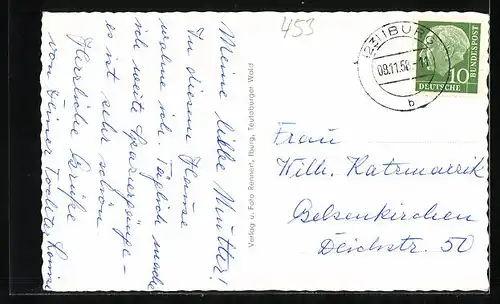 453
Meine liebe Mutter!
In diesem Hause
wohne ich. Täglich mache
ich weite Spaziergänge –
es ist sehr schön.
Herzliche Grüße
von Deiner Tochter
Verlag u. Foto Rennert, Iburg, Teutoburger Wald
(23) IBURG
08.11.56
b
10
DEUTSCHE
BUNDESPOST
Frau
Wilh. Katzmarzik
Gelsenkirchen
Deichstr. 50